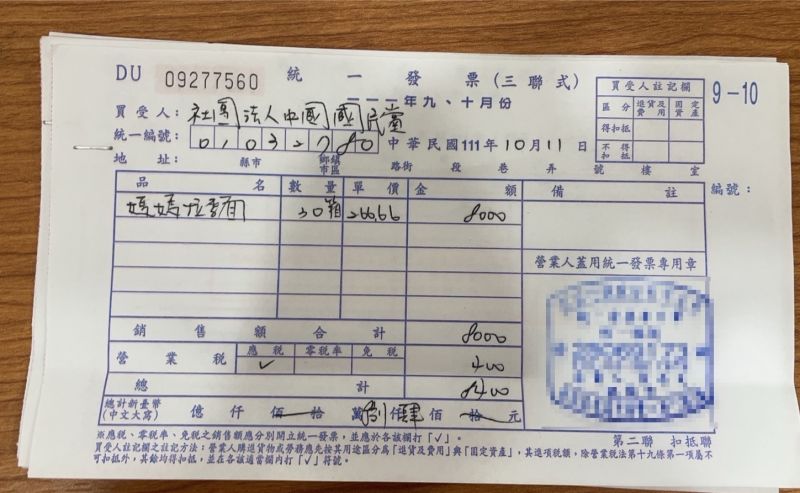 DU 09277560 統一發票(三聯式)
一一一年九、十月份
9-10
買受人: 社團法人中國國民黨
統一編號:
中華民國111年10月11日
地址: 縣市 鄉鎮市區 路街 段 巷 弄 號 樓 室
買受人註記欄
區分 進貨及費用 固定資產
得扣抵
不得扣抵
編號:
品名 數量 單價 金額 備註
30箱 266.66 8000
營業人蓋用統一發票專用章
銷售額合計 8000
營業稅 應稅 ✓ 零稅率 免稅 400
總計 8400
總計新臺幣(中文大寫) 億 仟 佰 拾 萬 捌仟肆佰 拾 元
第二聯 扣抵聯
※應稅、零稅率、免稅之銷售額應分別開立統一發票,並應於各該欄打「✓」。
買受人註記欄之註記方法:營業人購進貨物或勞務應先按其用途區分為「進貨及費用」與「固定資產」,其進項稅額,除營業稅法第十九條第一項屬不
可扣抵外,其餘均得扣抵,並在各該適當欄內打「✓」符號。